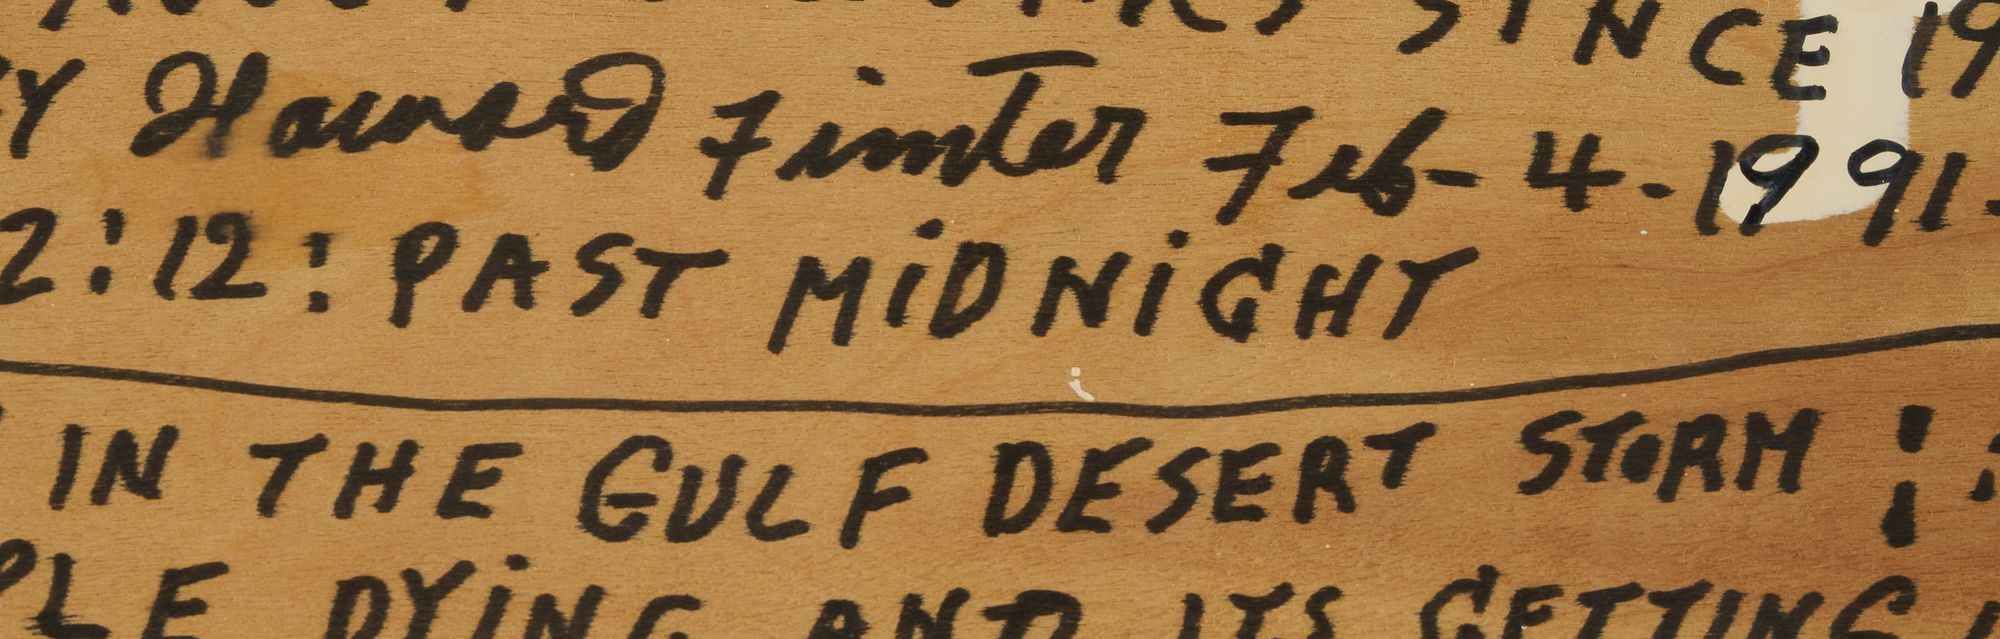 SINCE 19
Y Howard Finster Feb- 4. 1991.
2:12: PAST MiDNiGHT
IN THE GULF DESERT STORM
PLE DYiNG AND ITS GETTING